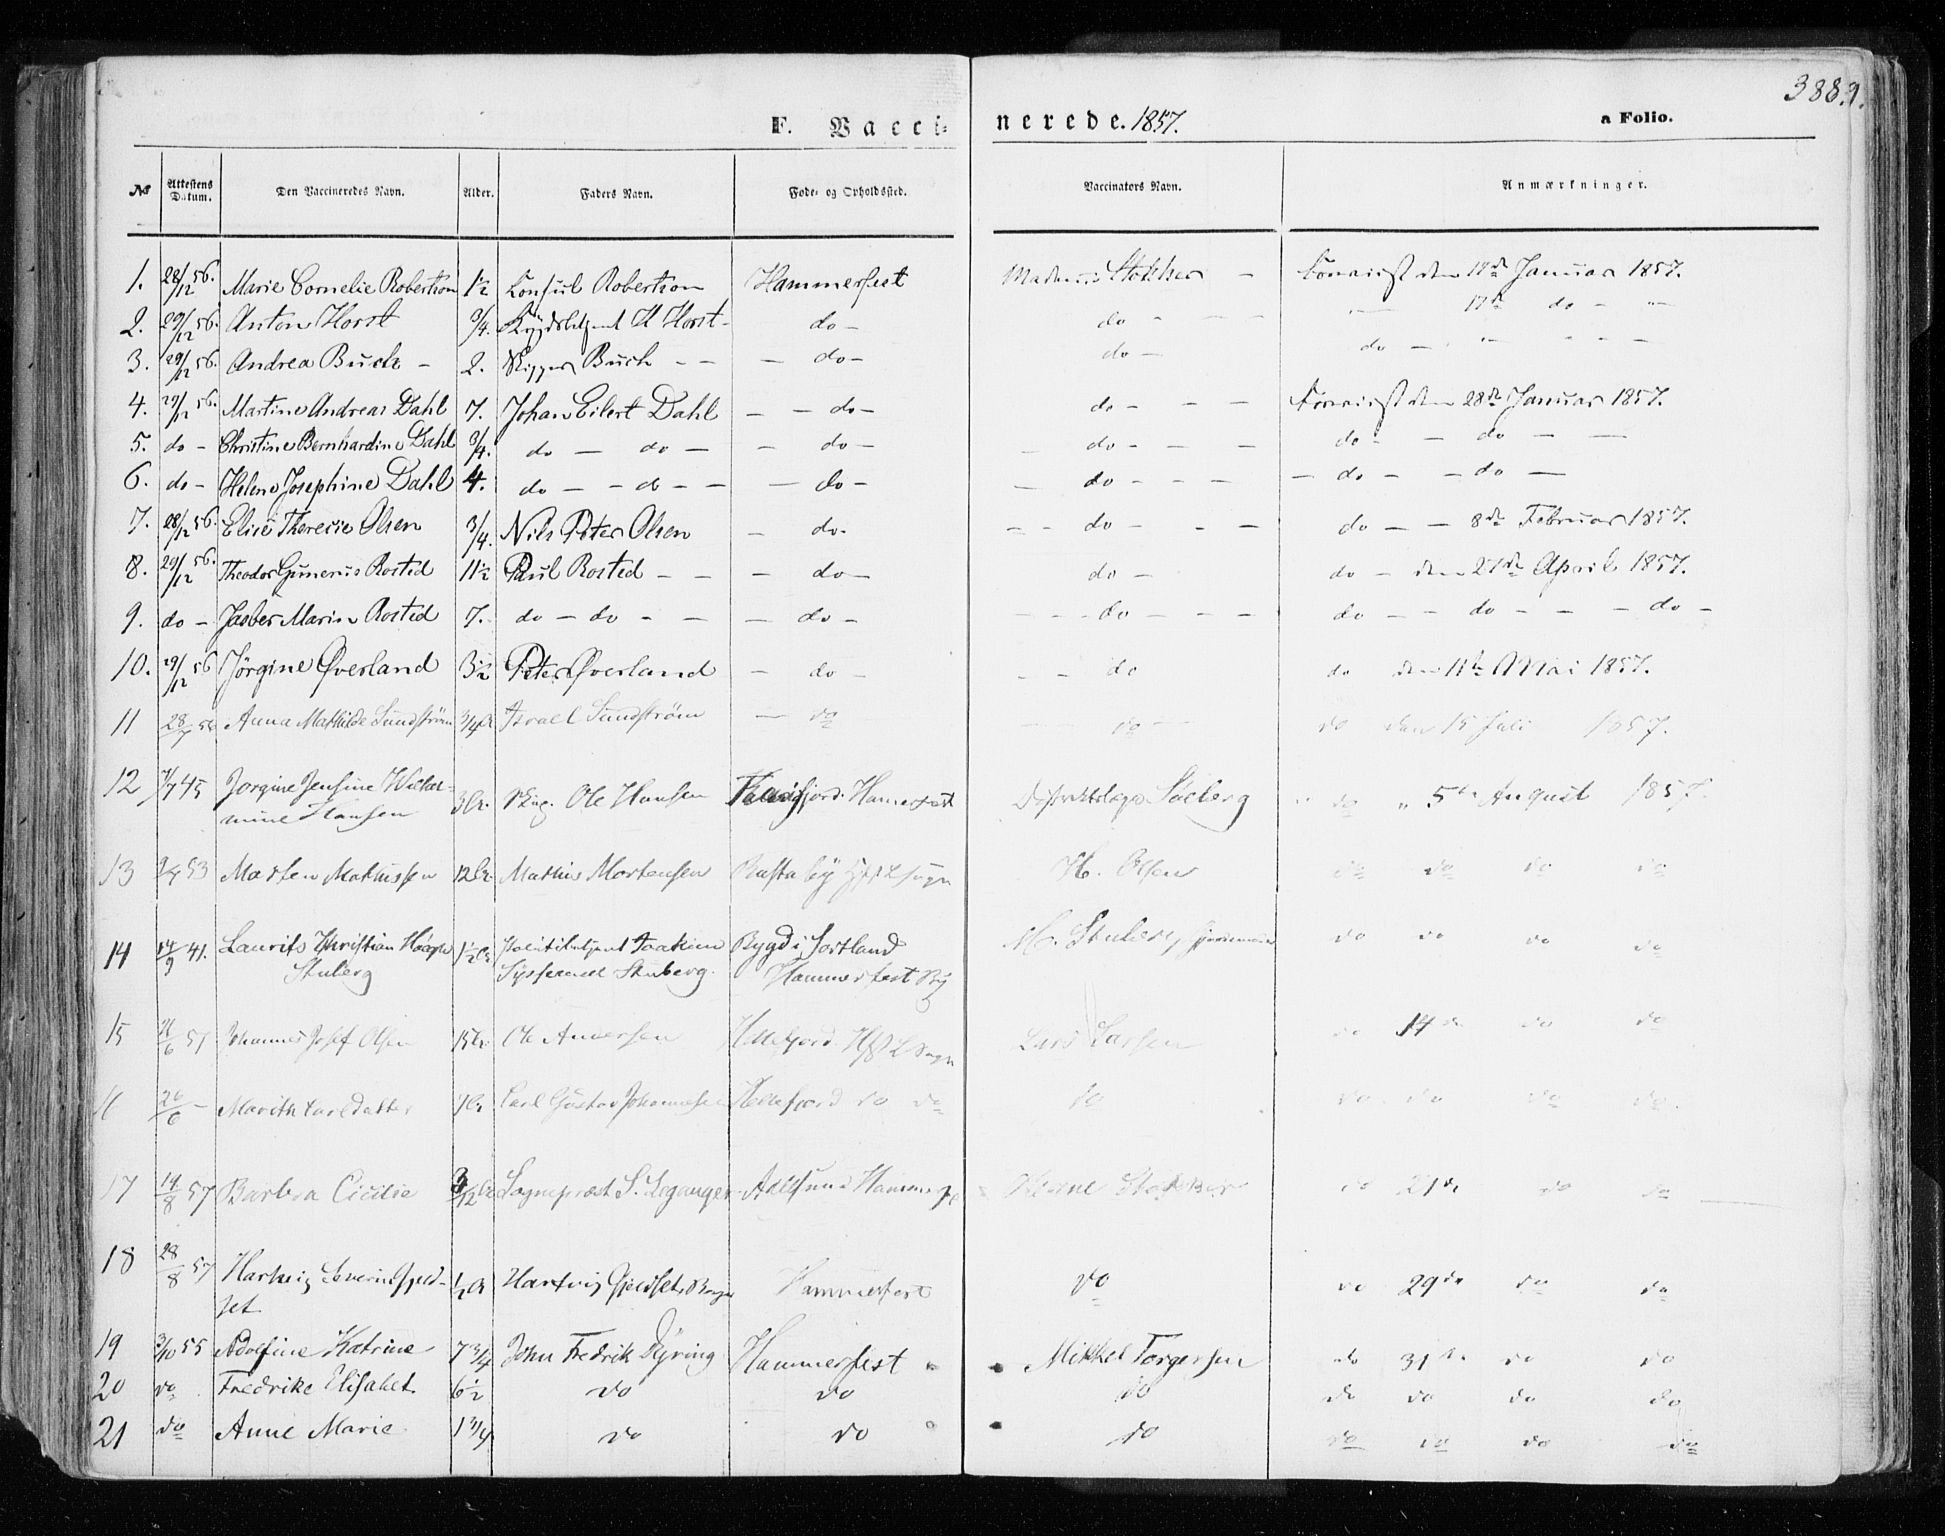 388.
F. Vaccinerede. 1857.
a Folio.
No Attestens Datum. Den Vaccineredes Navn. Alder. Faders Navn. Føde- og Opholdssted. Vaccinators Navn. Anmærkninger.
1. 28/12 56. Marie Cornelie Robertson 1½ Konsul Robertson Hammerfest Madame Stokker - Foreviist den 17de Januar 1857.
2. 29/12 56. Anton Horst 3/4. H Horst - do - do - - - 17de do - "
3. 29/12 56. Andrea Buck - 2. Skipper Buck - - - do - do - do - " - - -
4. 29/12 56. Martine Andreas Dahl 7. Johan Eilert Dahl - - do - do - - - Foreviist den 28de Januar 1857.
5. do - Christine Bernhardine Dahl 3/4. do - do - - do - - do - - - do - - do - -
6. do - Helene Josephine Dahl 4. do - - do - - - do - - do - - - - do - - do -
7. 28/12 56. Elise Theresie Olsen 3/4. Nils Peter Olsen - do - - - do - - - do - - 8de Februar 1857.
8. 29/12 56. Theodor Gunerius Rosted 11½ Paul Rosted - - - do - do - do - den 27de April 1857.
9. do - Jasber Marin Rosted 7. do - do - - - do - - - do - - - do - - do - - - do -
10. 29/12 56 Jørgine Øverland 3½ Peter Øverland - do - - - do do den 11te Mai 1857.
11 28/7 56 Anna Mathilde Sundstrøm 3/4 A Israel Sundstrøm - do - do - do den 15 Juli 1857.
12 45 Jorgine Jensine Wilhel-
mine Hansen 3 Ar. Ole Hansen Hammerfest Distriktslæge Solberg " do " 5te August 1857.
13 53 Morten Mathissen 12 Ar. Mathis Mortensen sogn H. Olsen do do do do
14 14/9 41. Laurits Christian
Stuberg 1½ Ar Stuberg. Bygd i Sortland
Hammerfest By do do do do
15 6 51 Johannes Josef Olsen 15 Ar. Ole Andersen Hellefjord. Hfst L Sogn Lars Larsen do 14de do do
16 26/6 - Marith Carlsdatter 7 Ar Carl Gustav Johannesen Hellefjord do do do do do do do
17 14/8 57 Barbra Cicilie 3/12 Ar Sognepræst S. Leganger Hammerfest Stokker do 21de do do
18 28/8 57 Hartvig Severin Gjeld-
set ½ A Hartvig Gjeldset, Hammerfest do do 29de do do
19 3/10 55 Adolfine Katrine 7 3/4 John Fredrik Dyring Hammerfest Mikkel Torgersen do 31te do do
20 do Fredrike Elisabet. 6½ do do do do do do do
21 do Anne Marie 1 3/4 do do do do do do do